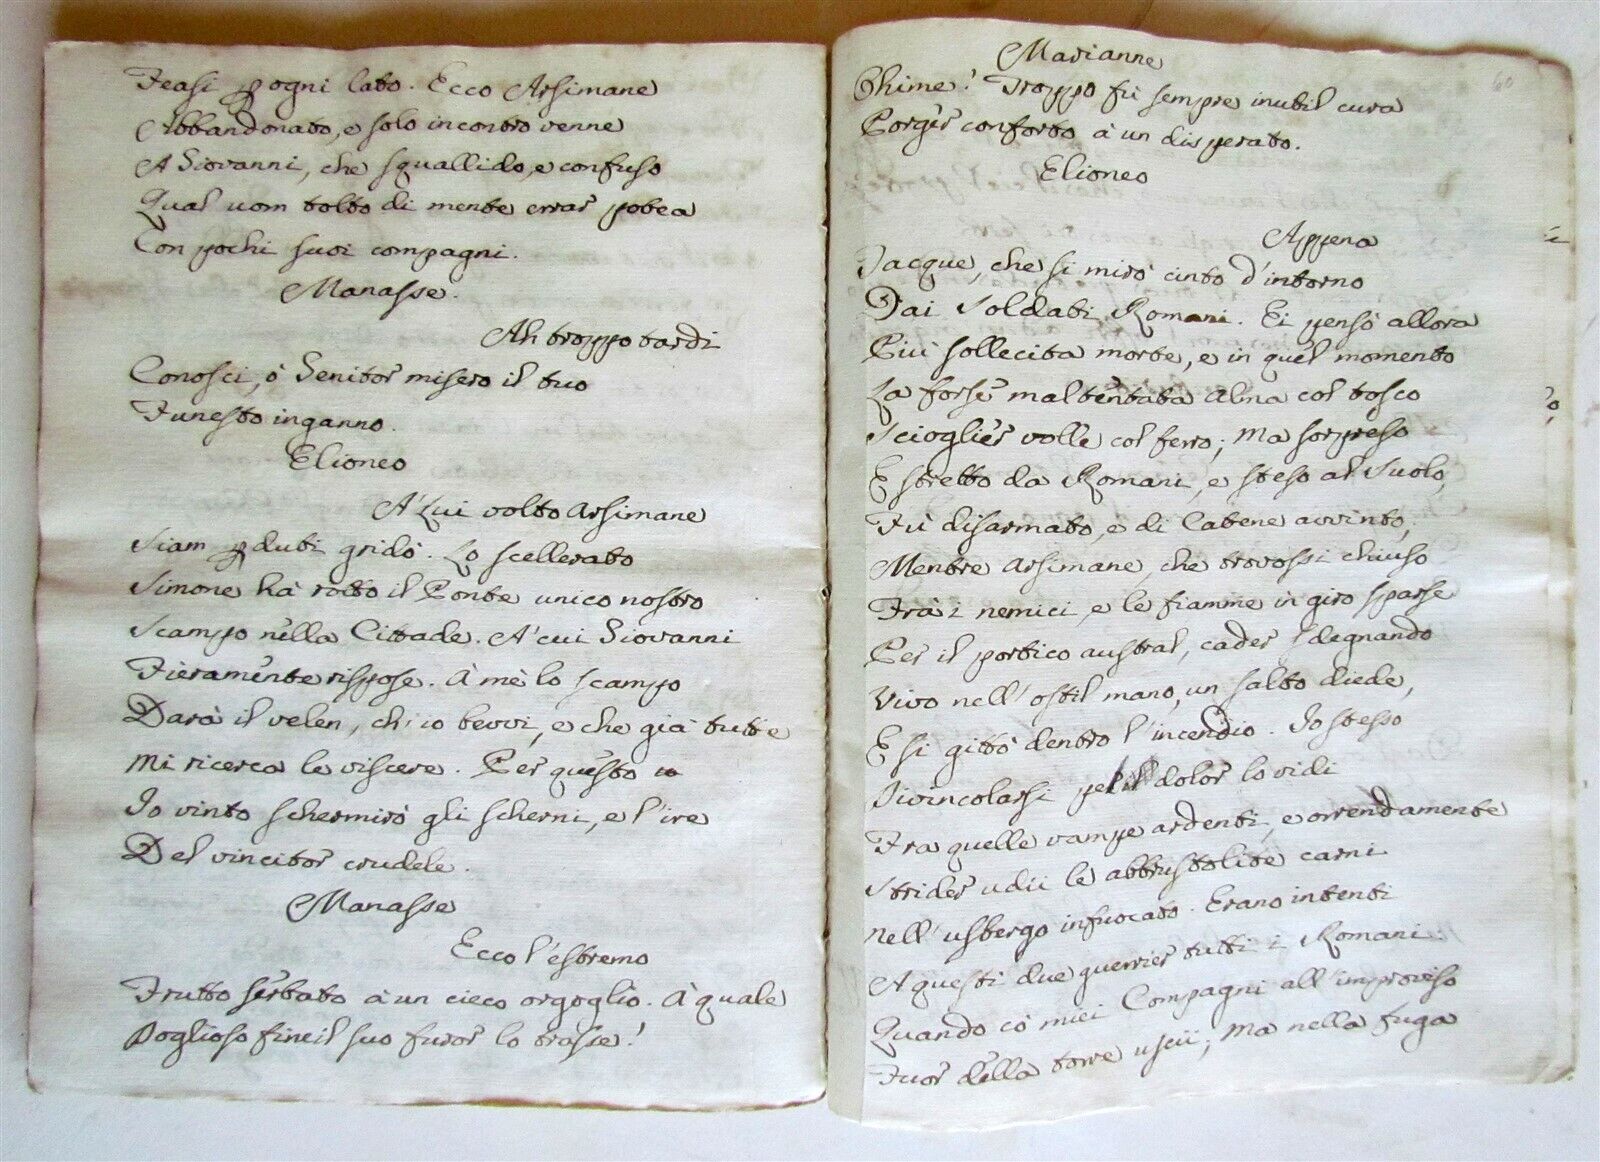 Feasi p ogni lato. Ecco Arsimane
Abbandonato, e solo incontro venne
A Giovanni, che squallido, e confuso
Qual uom tolto di mente errar potea
Con pochi suoi compagni.
Manasse.
Ah troppo tardi
Conosci, ò Genitor misero il tuo
Funesto inganno.
Elioneo
A' Lui volto Arsimane
Siam pduti gridò. Lo scellerato
Simone hà rotto il Ponte unico nostro
Scampo nella Cittade. A' cui Giovanni
Fieramente rispose. À mè lo scampo
Darà il velen, ch'io bevvi, e che già tutte
Mi ricerca le viscere. Per questo
Io vinto schermirò gli scherni, e l'ire
Del vincitor crudele.
Manasse
Ecco l'estremo
Frutto serbato à un cieco orgoglio. À quale
Doglioso fine il suo furor lo trasse!
60
Marianne
Ohime! Troppo fù sempre inutil cura
Porger conforto à un disperato.
Elioneo
Appena
Tacque, che si mirò cinto d'intorno
Dai Soldati Romani. Ei pensò allora
Più sollecita morte, e in quel momento
La forse mal tentata alma col tosco
Scioglier volle col ferro; Ma sorpreso
E stretto da Romani, e steso al Suolo,
Fù disarmato, e di Catene avvinto,
Mentre Arsimane, che trovossi chiuso
Frà i nemici, e le fiamme in giro sparse
Per il portico austral, cader sdegnando
Vivo nell'ostil mano, un salto diede,
E si gittò dentro l'incendio. Io stesso
Divincolarsi pel dolor lo vidi
Fra quelle vampe ardenti, e orrendamente
Strider udii le abbrustolite carni
Nell'usbergo infuocato. Erano intenti
A questi due guerrier tutti i Romani
Quando cò miei Compagni all'improviso
Fuor della torre uscii; Ma nella fuga